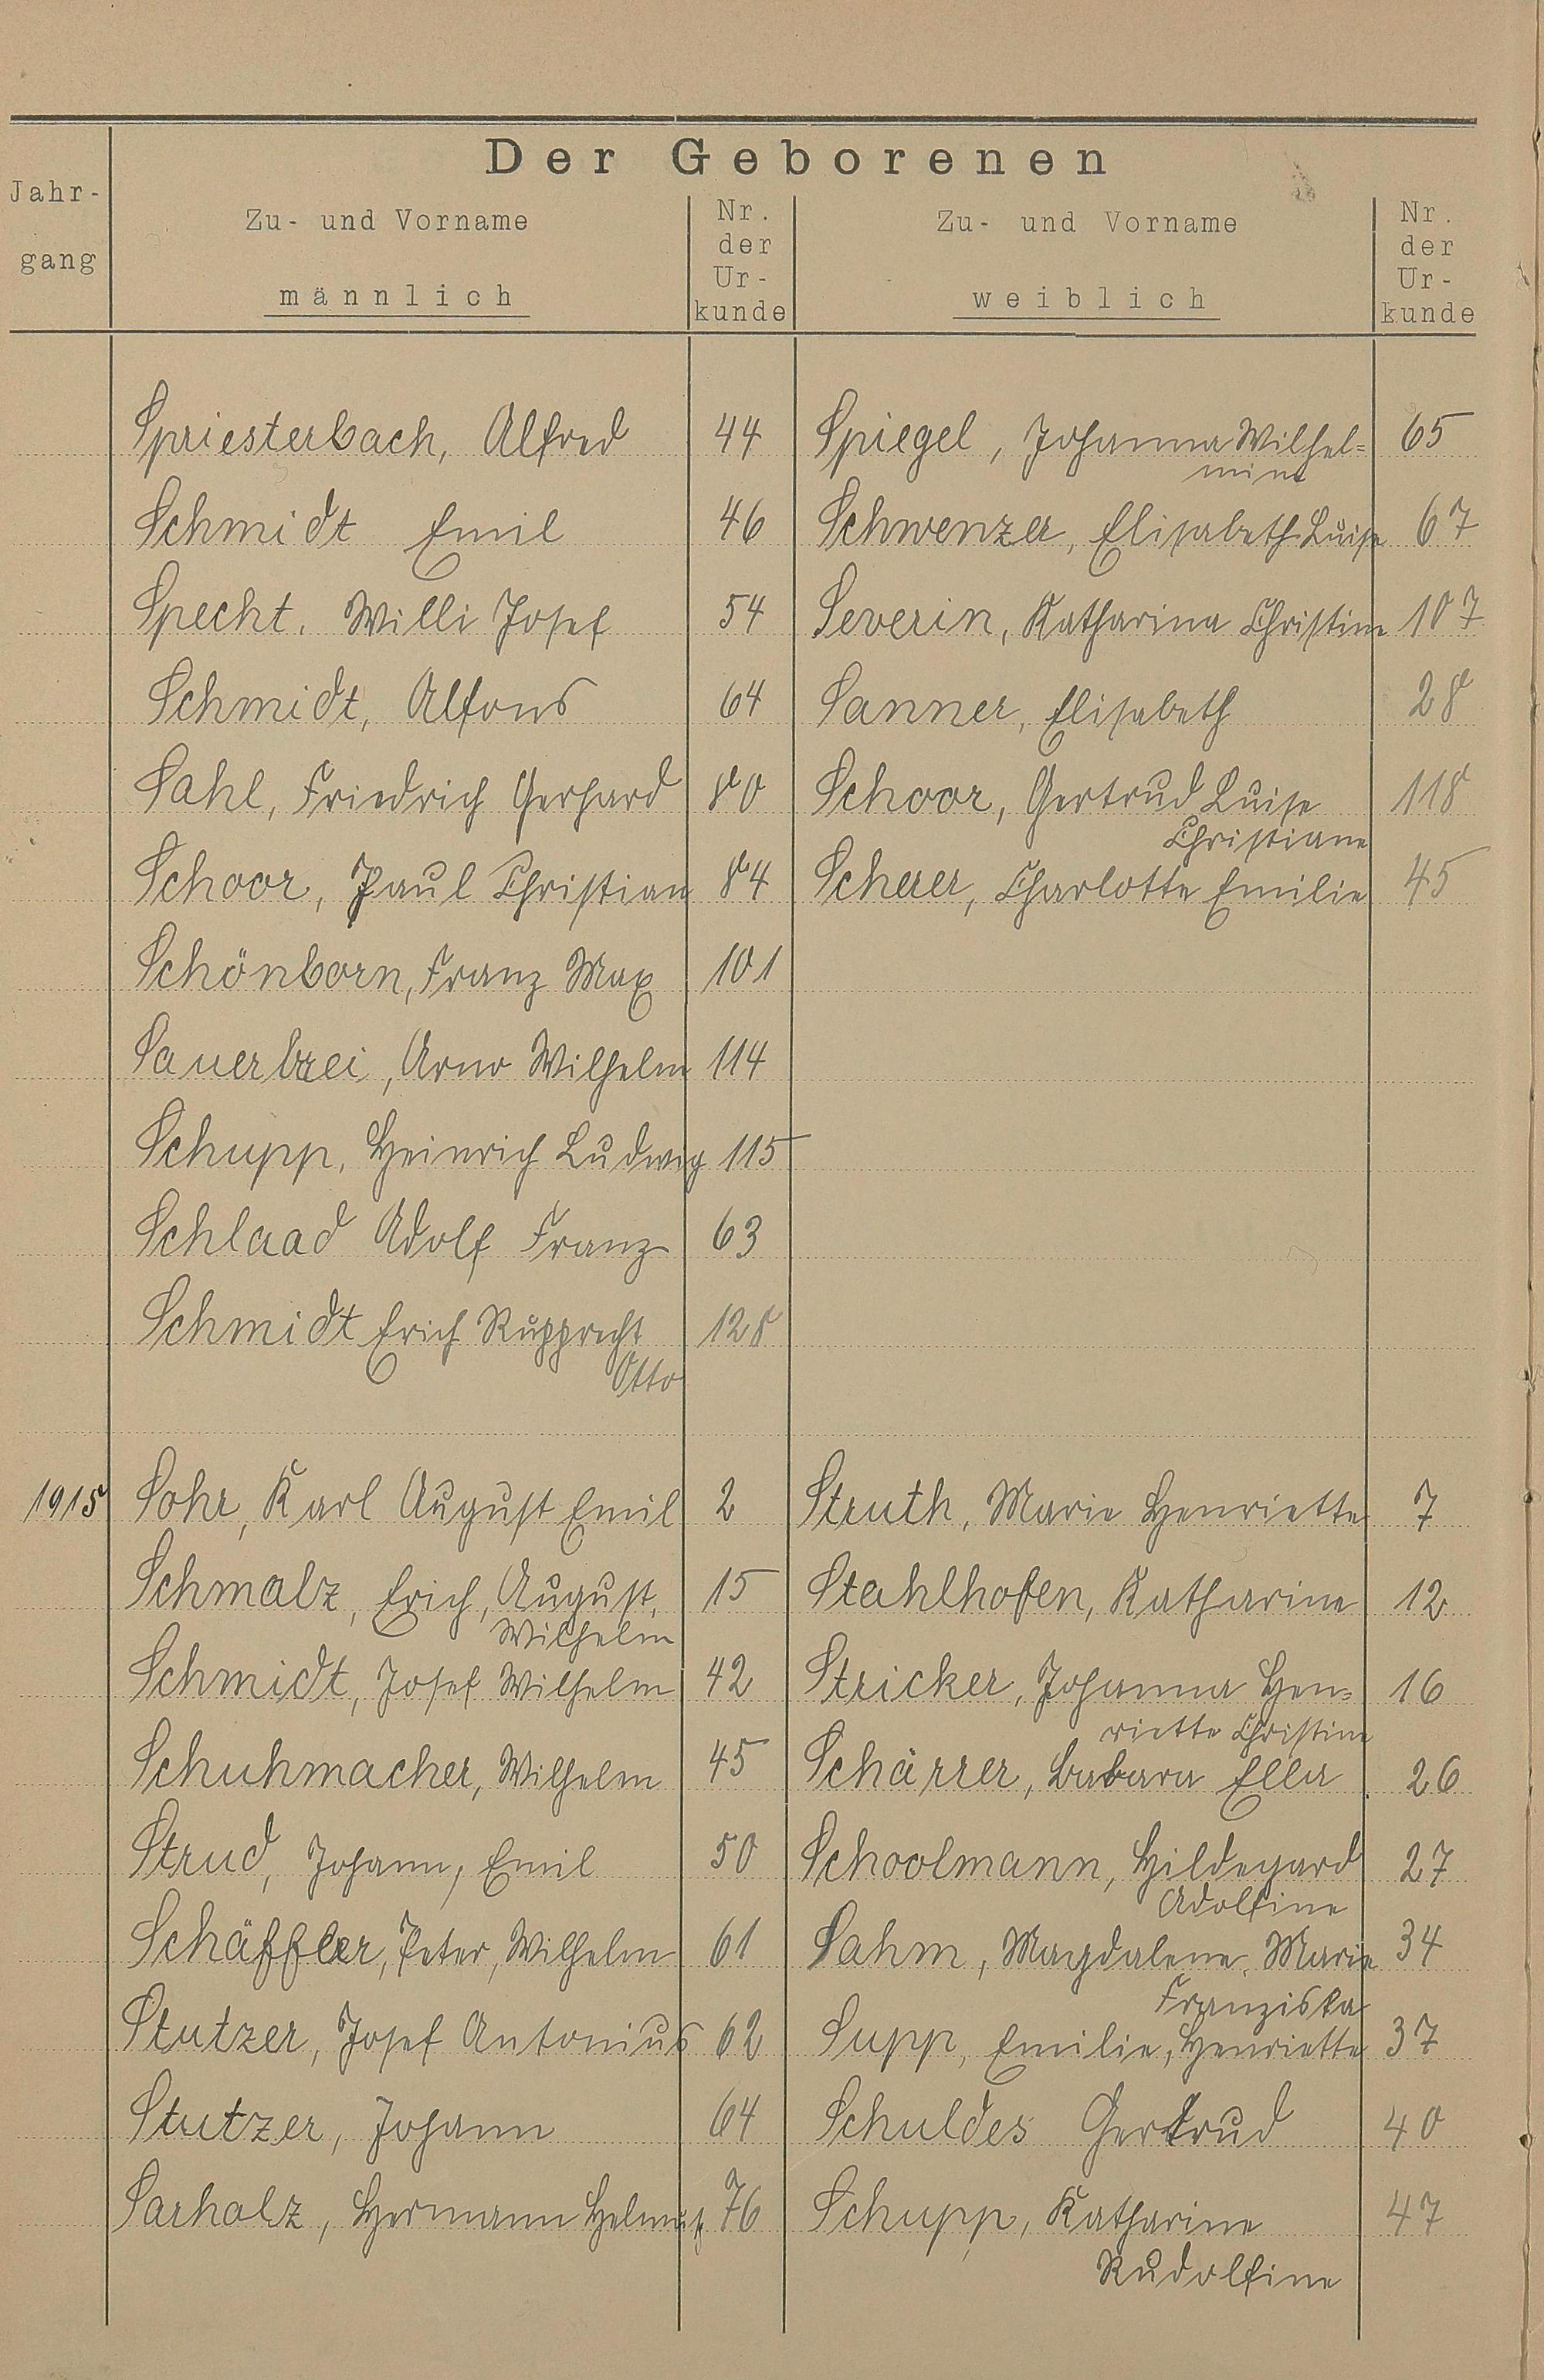 Der Geborenen
Jahr-
gang
Zu- und Vorname
männlich
Nr.
der
Ur-
kunde
Zu- und Vorname
weiblich
Nr.
der
Ur-
kunde
Spriesterbach, Alfred 44 Spiegel, Johanna Wilhel= 65
mine
Schmidt Emil 46 Schwenzer, Elisabeth Luise 67
Specht. Willi Josef 54 Severin, Katharina Christine 107
Schmidt, Alfons 64 Sanner, Elisabeth 28
Sahl, Friedrich Gerhard 80 Schoor, Gertrud Luise 118
Christiane
Schoor, Paul Christian 84 Scherer, Charlotte Emilie 45
Schönborn, Franz Max 101
Sauerbrei, Arno Wilhelm 114
Schupp, Heinrich Ludwig 115
Schlaad Adolf Franz 63
Schmidt Erich Rupprecht 128
Otto
1915 Sohr, Karl August Emil 2 Struth, Marie Henriette 7
Schmalz, Erich, August, 15 Stahlhofen, Katharine 12
Wilhelm
Schmidt, Josef Wilhelm 42 Stricker, Johanna Hen= 16
riette Christine
Schuhmacher, Wilhelm 45 Schärrer, Babara Ella 26
Strud, Johann, Emil 50 Schoolmann, Hildegard 27
Adolfine
Schäffler, Peter, Wilhelm 61 Sahm, Magdalene, Marie 34
Franziska
Stutzer, Josef Antonius 62 Supp, Emilie, Henriette 37
Stutzer, Johann 64 Schuldes Gertrud 40
Sarholz, Hermann Helmuth 76 Schupp, Katharine 47
Rudolfine